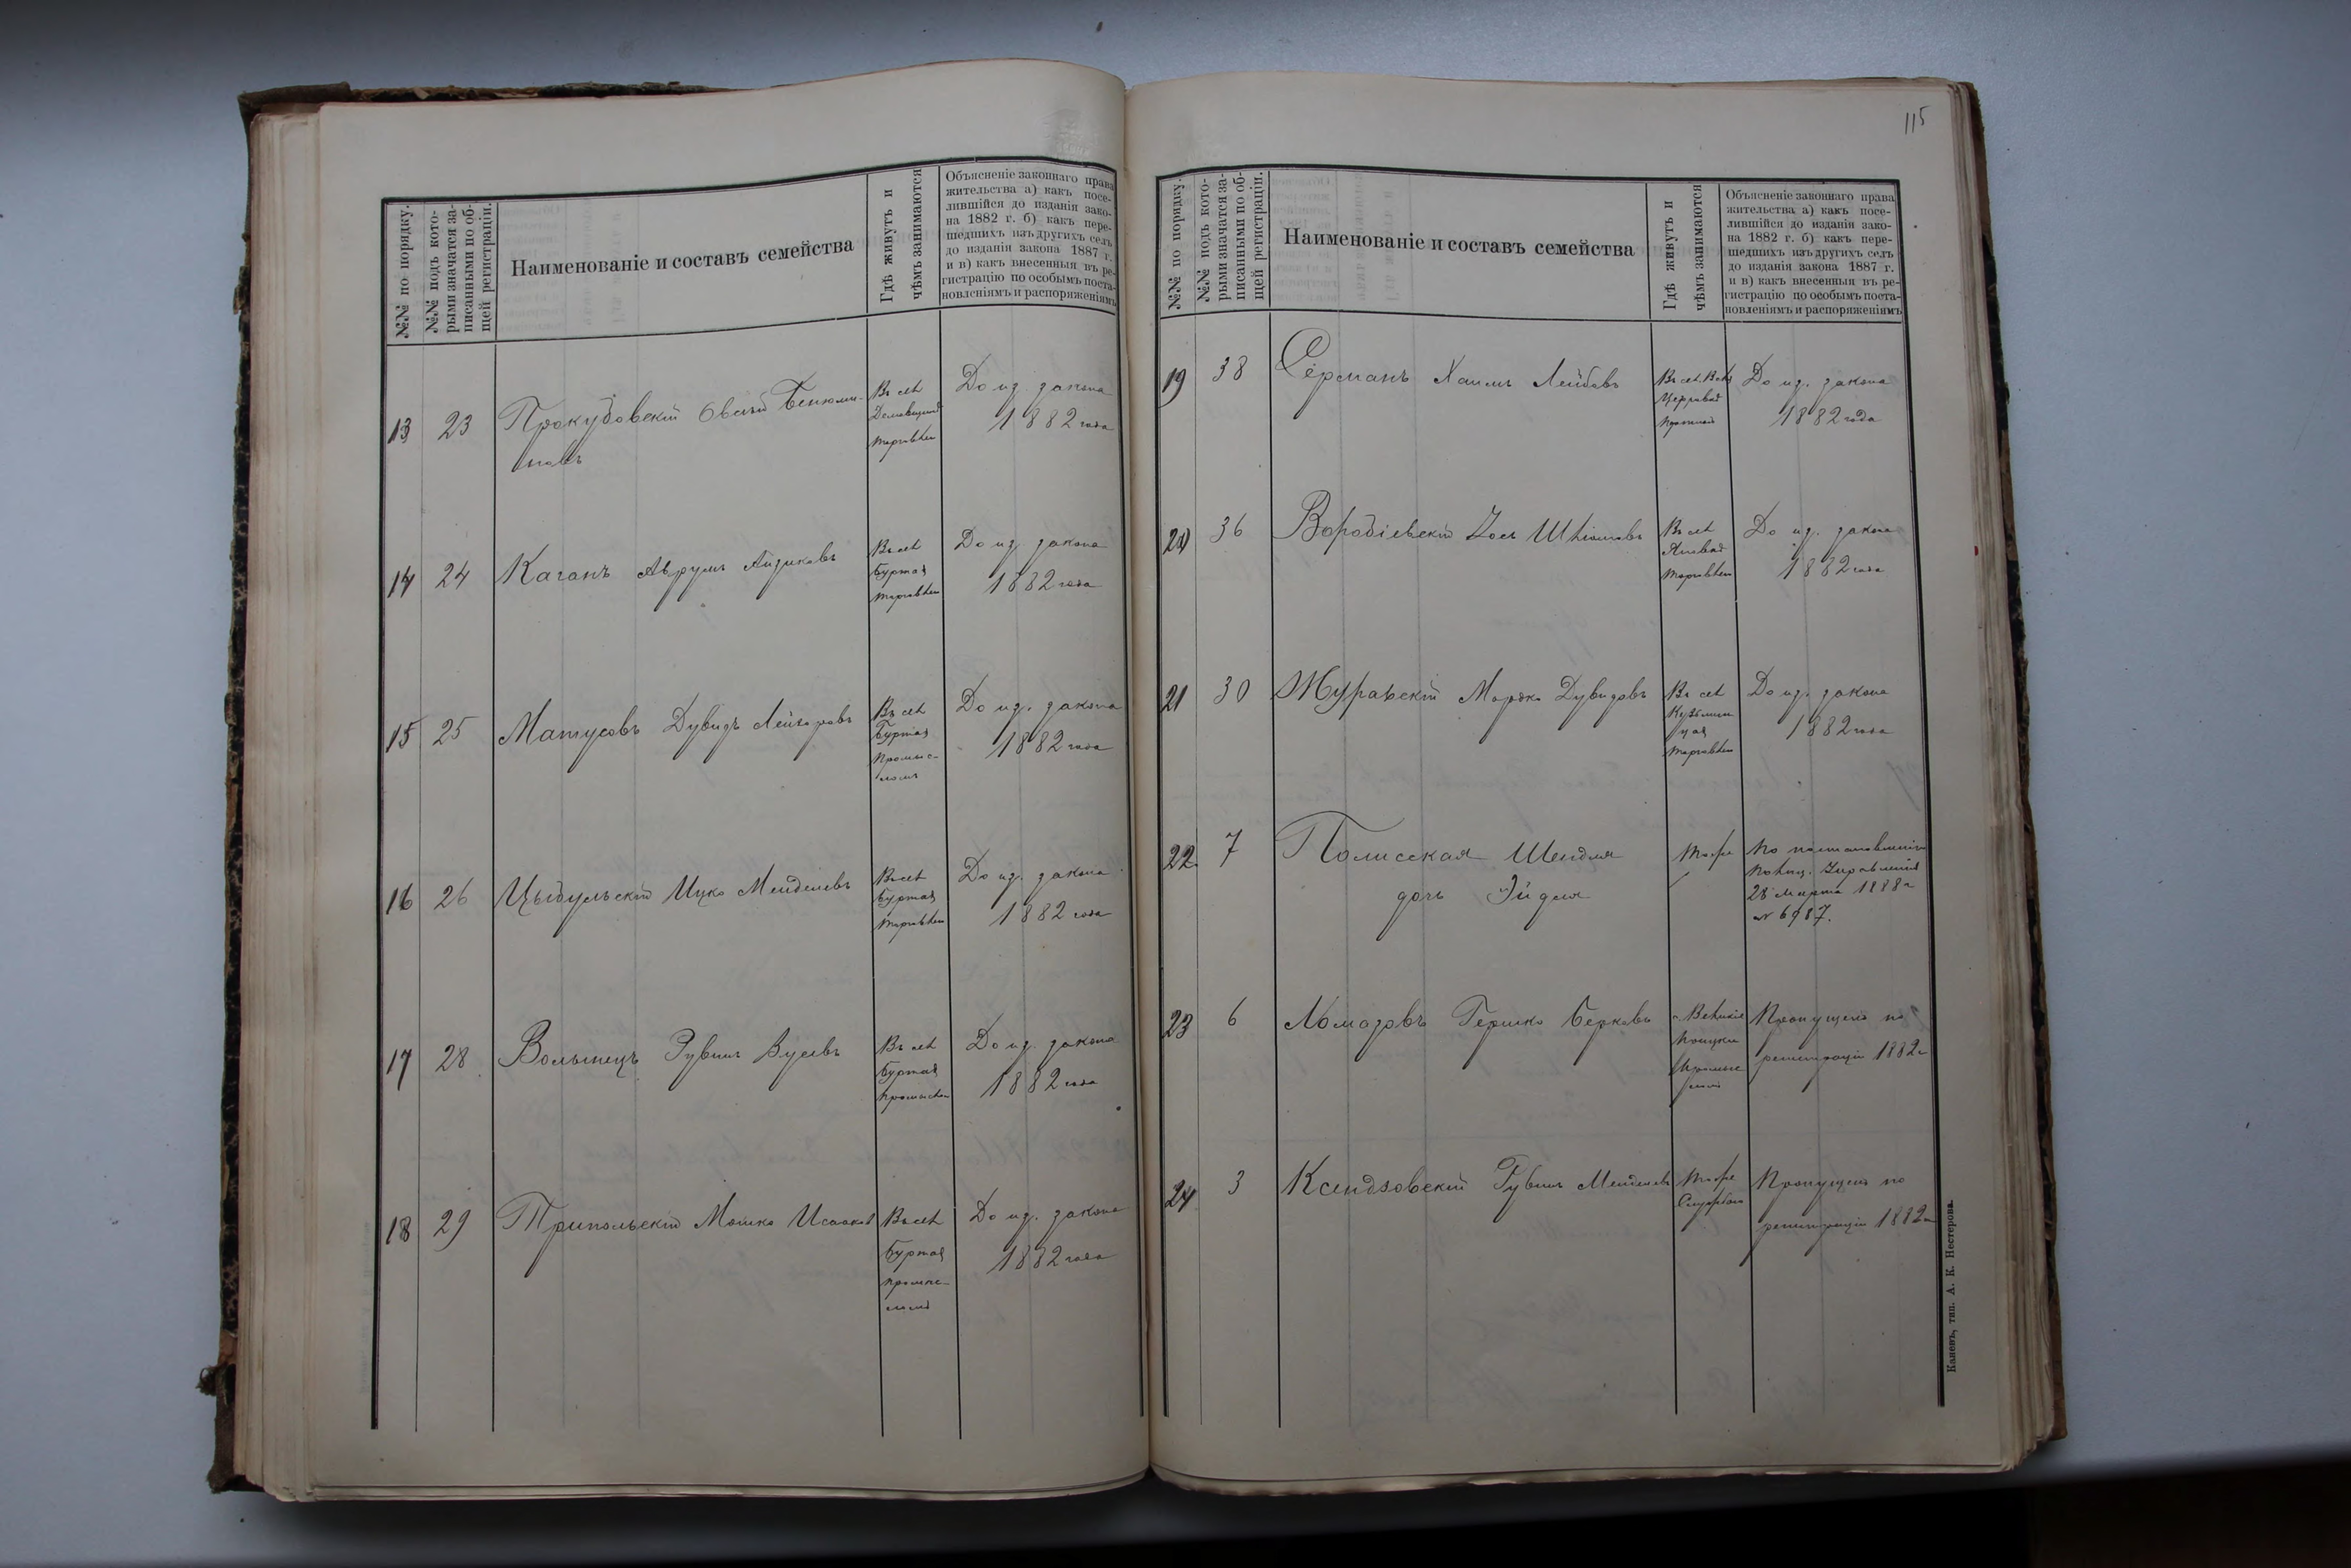 115
№№ по порядку.
№№ подъ кото-
рыми значатся за-
писанными по об-
щей регистраціи.
Наименованіе и составъ семейства
Гдѣ живутъ и
чѣмъ занимаются
Объясненіе законнаго права
жительства а) какъ посе-
лившійся до изданія зако-
на 1882 г. б) какъ пере-
шедшихъ изъ другихъ селъ
до изданія закона 1887 г.
и в) какъ внесенныя въ ре-
гистрацію по особымъ поста-
новленіямъ и распоряженіямъ
13 23 Овсій Бенюми-
новъ
Въ селѣ
торговлею
До из. закона
1882 года
14 24 Каганъ Аврумъ Айзиковъ
Въ селѣ
Буртах
торговлею
До из. закона
1882 года
15 25 Матусовъ Дувидъ Лейзоровъ
Въ селѣ
Буртах
промыс-
ломъ
До из. закона
1882 года
16 26 Цыбульскій Ицко Мендилевъ
Въ селѣ
Буртах
торговлею
До из. закона
1882 года
17 28 Волынецъ Рувинъ Вусевъ
Въ селѣ
Буртах
До из. закона
1882 года
18 29 Трипольскій Мошко Исааковъ
Въ селѣ
Буртах
промыс-
ломъ
До из. закона
1882 года
№№ по порядку.
№№ подъ кото-
рыми значатся за-
писанными по об-
щей регистраціи.
Наименованіе и составъ семейства
Гдѣ живутъ и
чѣмъ занимаются
Объясненіе законнаго права
жительства а) какъ посе-
лившійся до изданія зако-
на 1882 г. б) какъ пере-
шедшихъ изъ другихъ селъ
до изданія закона 1887 г.
и в) какъ внесенныя въ ре-
гистрацію по особымъ поста-
новленіямъ и распоряженіямъ
19 38 Хаимъ Лейбовъ
До из. закона
1882 года
20 36 Воробіевскій
Въ селѣ
торговлею
До из. закона
1882 года
21 30 Журавскій Мордко Дувидовъ
Въ селѣ
торговлею
До из. закона
1882 года
22 7 Полисская Шендля
дочь Эйдля
тоже
По постановленію
28 Марта 1888 г
23 6 Ломазовъ Гершко Берковъ
Пропущенъ по
регистраціи 1882 г
24 3 Ксендзовскій Рувинъ Менделевъ
тоже
Пропущенъ по
регистраціи 1882 г
Каневъ, тип. А. К. Нестерова.